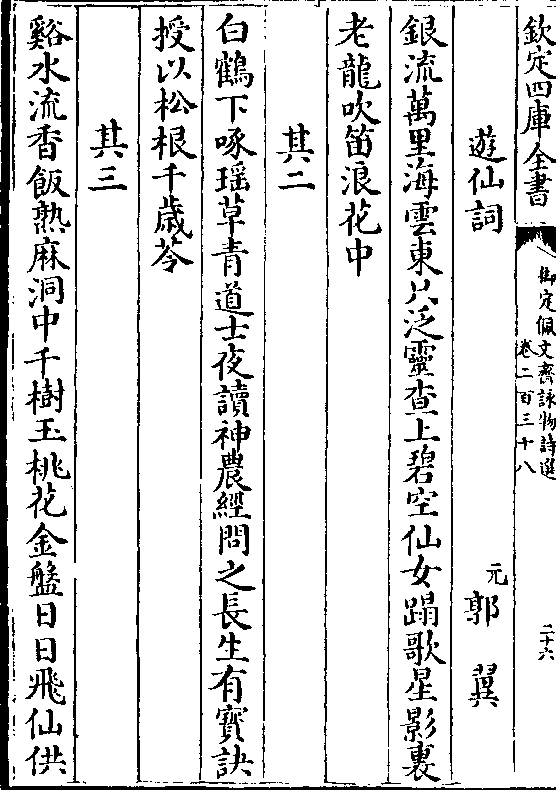 欽定四庫全書
御定佩文齋詠物詩選
卷二百三十八
二十六
遊仙詞
元
郭翼
銀流萬里海雲東只泛靈查上碧空仙女蹋歌星影裏
老龍吹笛浪花中
其二
白鶴下啄瑶草青道士夜讀神農經問之長生有寳訣
授以松根千歳苓
其三
谿水流香飯熟麻洞中千樹玉桃花金盤日日飛仙供